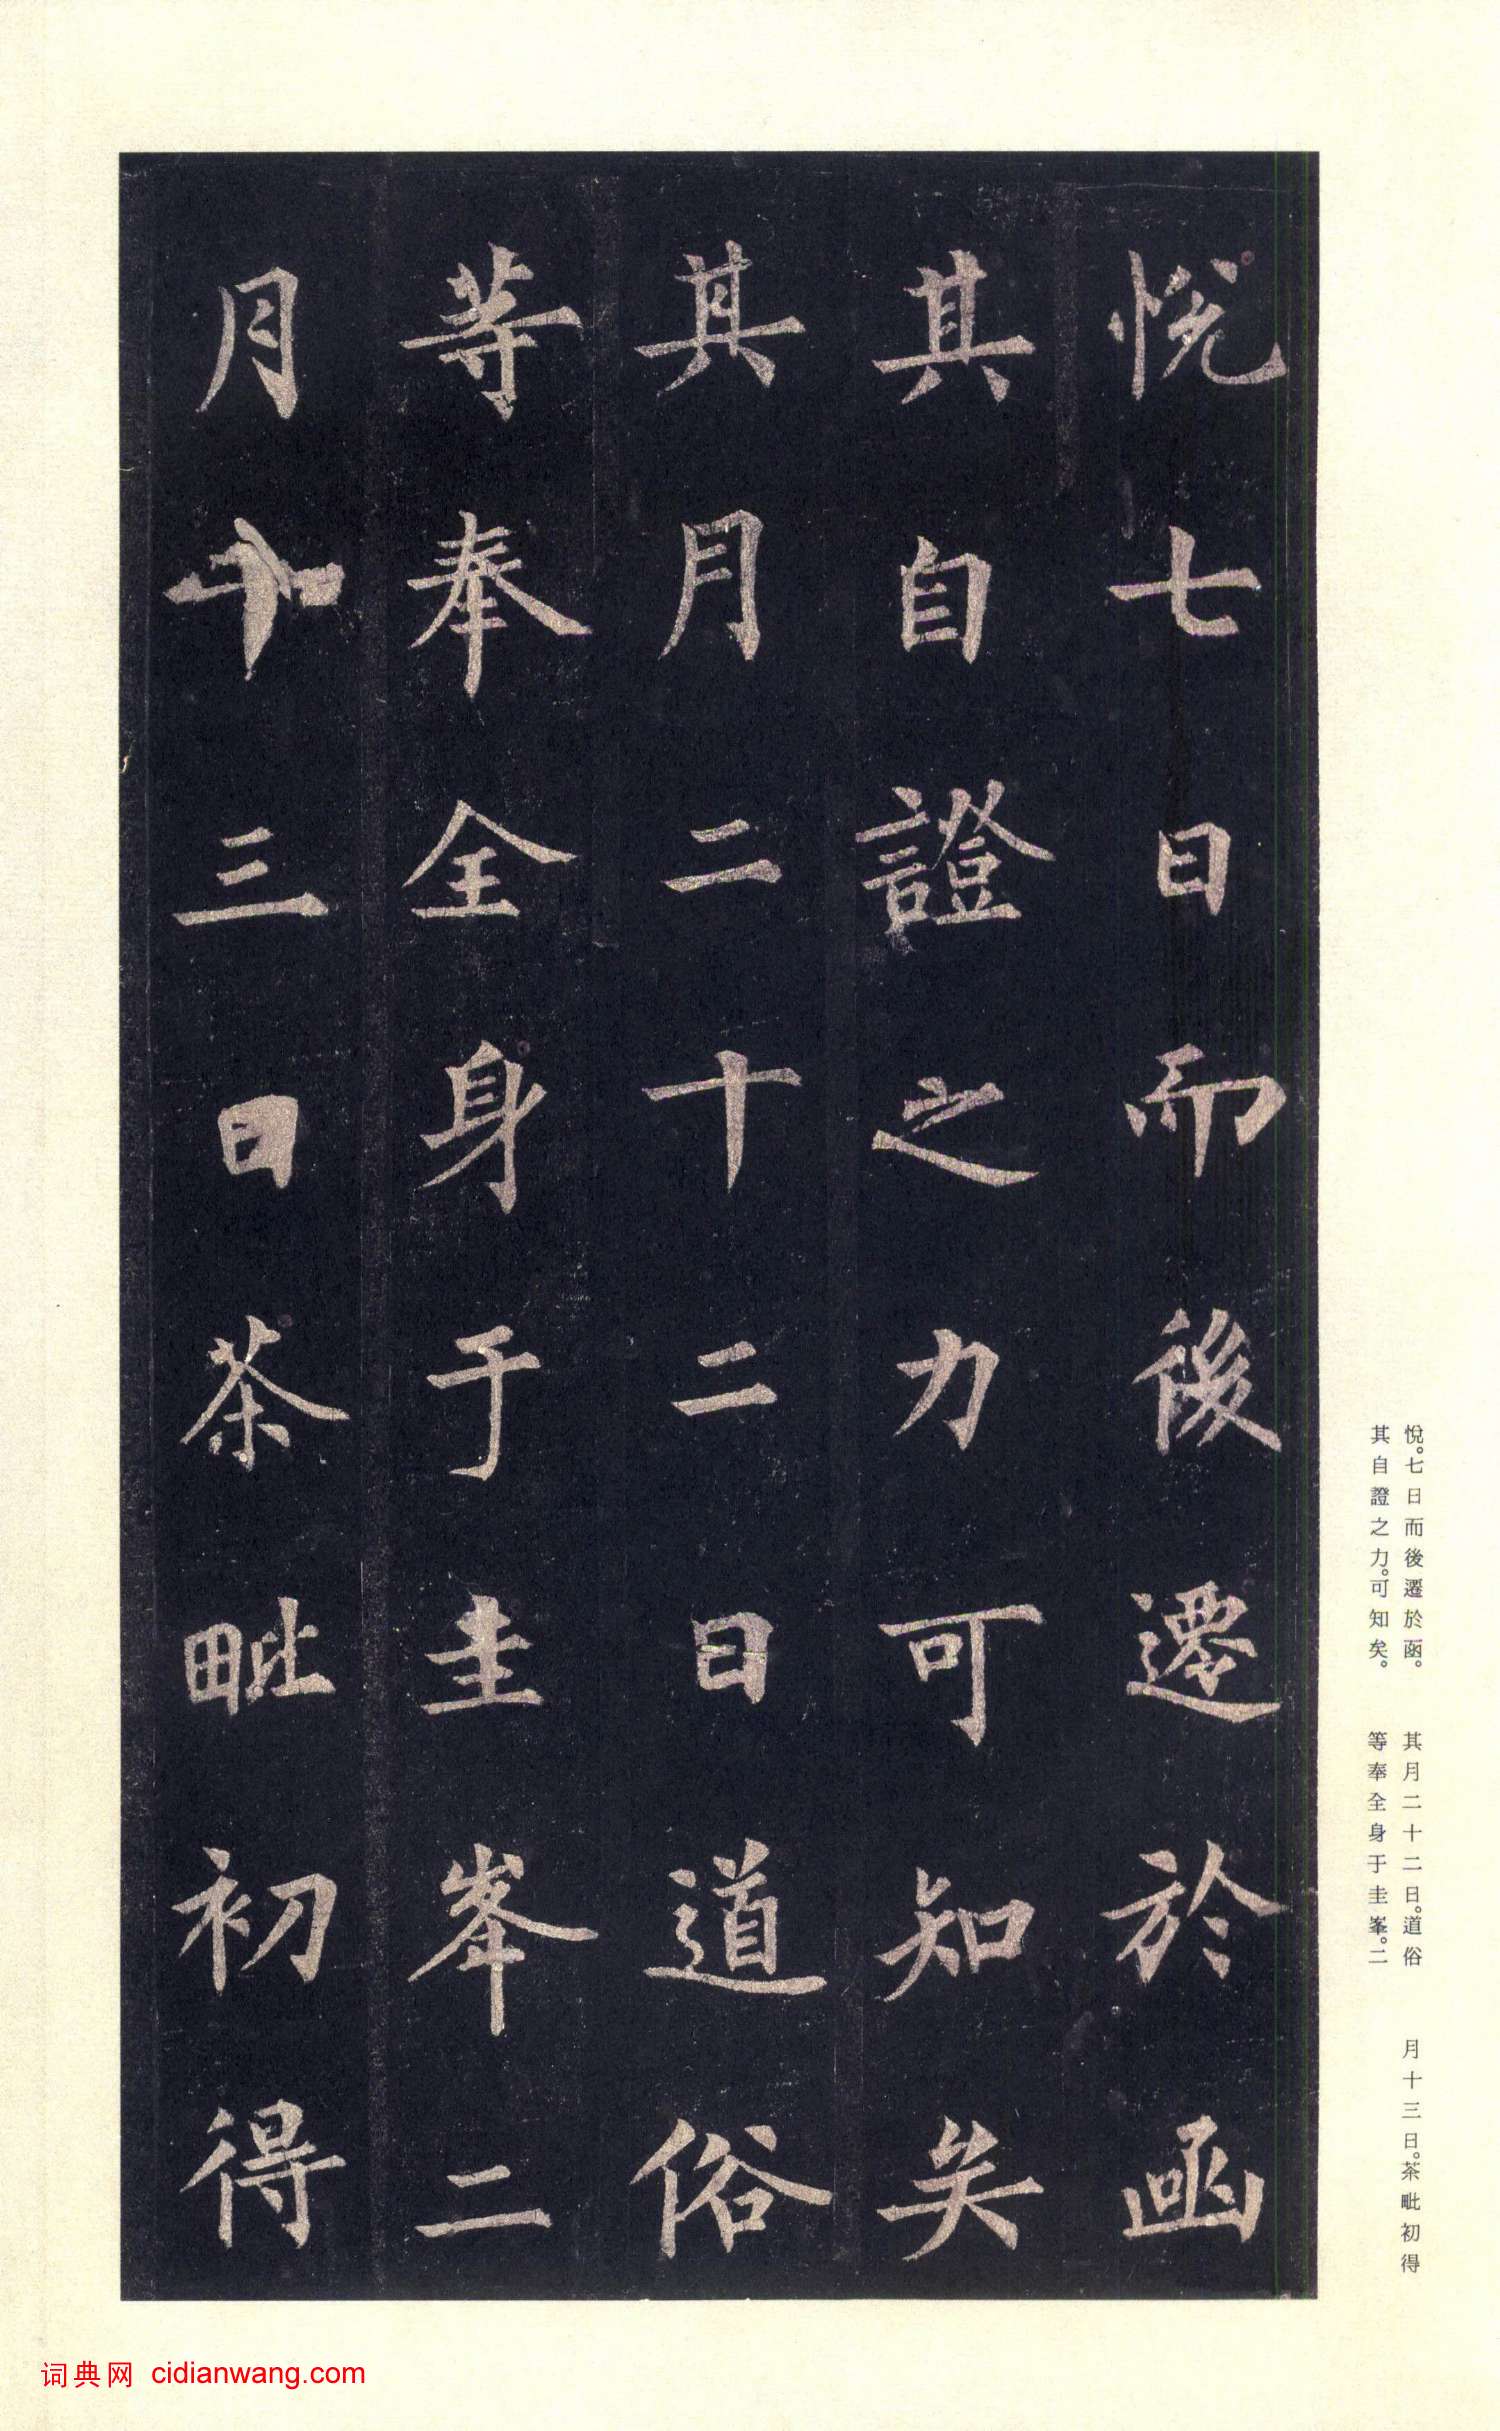 悦七日而後遷於函
其自證之力可知矣
其月二十二日道俗
等奉全身于圭峯二
月十三日茶毗初得
悅。七日而後遷於函。
其自證之力。可知矣。
其月二十二日。道俗
等奉全身于圭峯。二
月十三日。茶毗初得
词典网 cidianwang.com